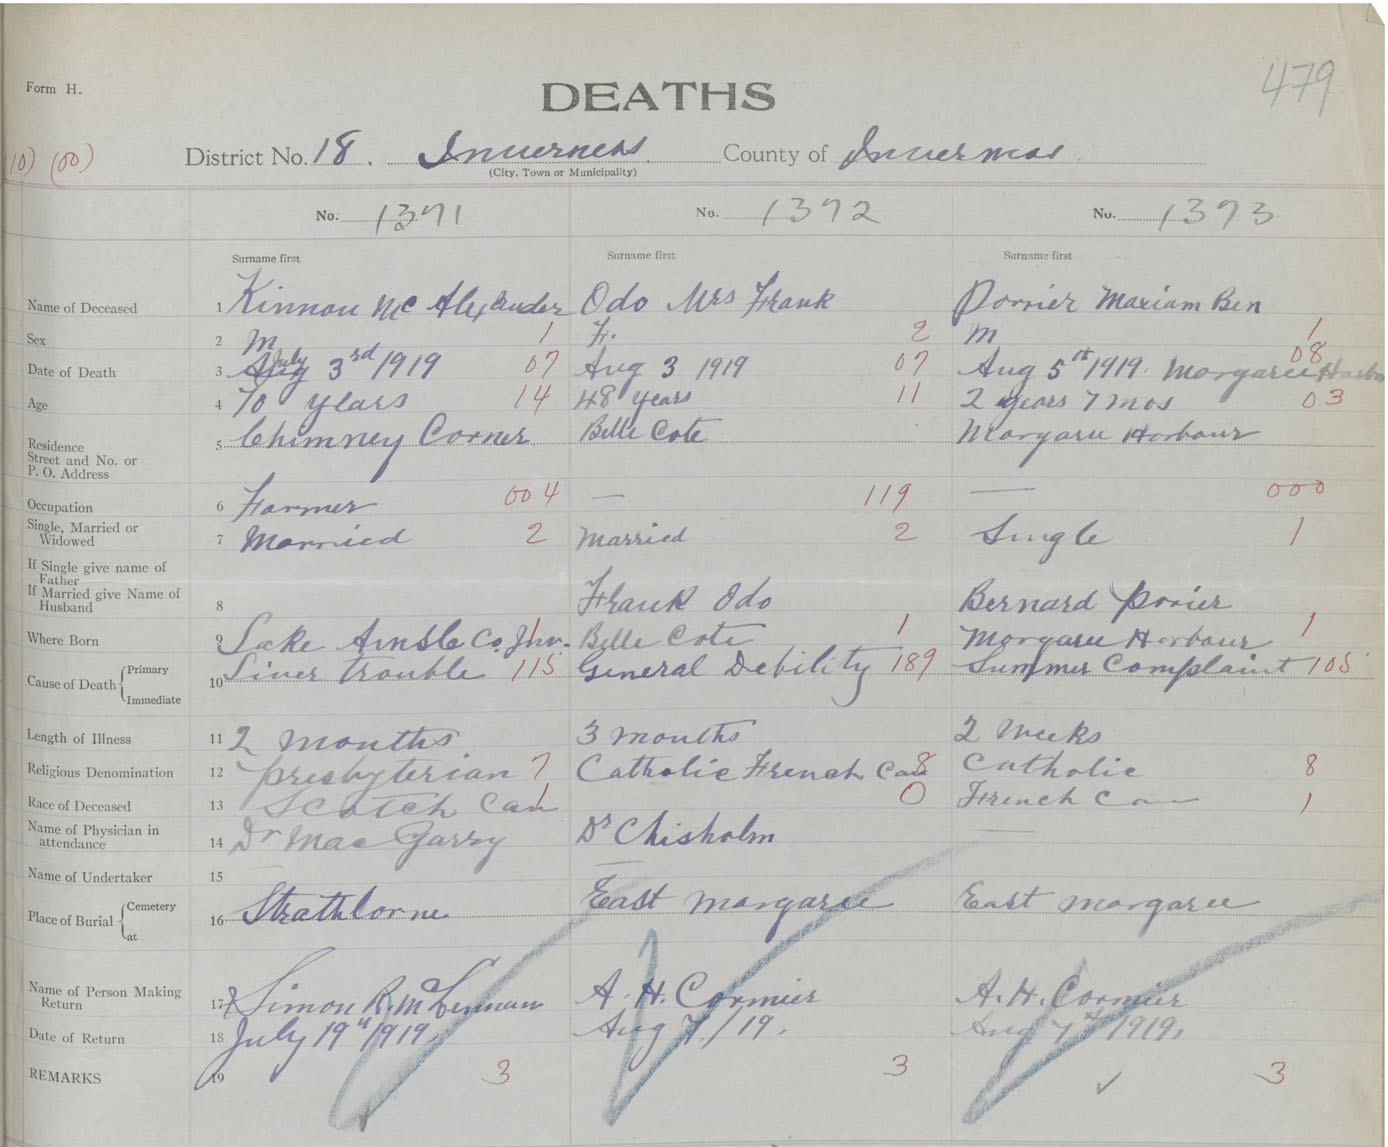 Form H.
DEATHS
479
(10) (00)
District No. 18. Inverness County of Inverness
(City, Town or Municipality)
No. 1371 No. 1372 No. 1373
Surname first Surname first Surname first
Name of Deceased 1 Kinnon Mc Alexander Odo Mrs Frank Porrier Mariam Ben
Sex 2 M 1 F. 2 M 1
Date of Death 3 Aug July 3rd 1919 07 Aug 3 1919 07 Aug 5th 1919. Margaree Harbor 08
Age 4 70 years 14 48 years 11 2 years 7 mos 03
Residence
Street and No. or
P. O. Address
5 Chimney Corner Belle Cote Margaree Harbour
Occupation 6 Farmer 004 — 119 — 000
Single, Married or
Widowed
7 Married 2 Married 2 Single 1
If Single give name of
Father
If Married give Name of
Husband
8 Frank Odo Bernard Porier
Where Born 9 Lake Ainslie Co. Inv. 1 Belle Cote 1 Margaree Harbour 1
Cause of Death Primary
Immediate
10 Liver trouble 115 General Debility 189 Summer Complaint 105
Length of Illness 11 2 months 3 months 2 weeks
Religious Denomination 12 Presbyterian 7 Catholic French Can 8 Catholic 8
Race of Deceased 13 Scotch Can 1 0 French Can 1
Name of Physician in
attendance
14 Dr MacGarry Dr Chisholm —
Name of Undertaker 15 — —
Place of Burial Cemetery
at
16 Strathlorne East Margaree East Margaree
Name of Person Making
Return
17 Simon R. McLennan A. H. Cormier A. H. Cormier
Date of Return 18 July 19th 1919. Aug 7/19. Aug 7th 1919.
REMARKS 19 3 3 3